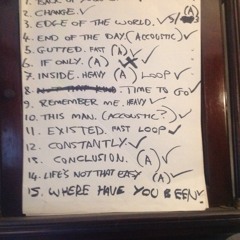 2. CHANGE. ✓
3. EDGE OF THE WORLD. ✓ 5/3
4. END OF THE DAY. (ACCOUSTIC) ✓
5. GUTTED. FAST (A) ✓
6. IF ONLY. (A) ✓
7. INSIDE. HEAVY (A) LOOP ✓
8. NOT THAT KIND. TIME TO GO
9. REMEMBER ME. HEAVY ✓
10. THIS MAN. (ACCOUSTIC?) ✓
11. EXISTED. FAST LOOP ✓
12. CONSTANTLY. ✓
13. CONCLUSION. (A) ✓
14. LIFE'S NOT THAT EASY (A) ✓
15. WHERE HAVE YOU BEEN ✓